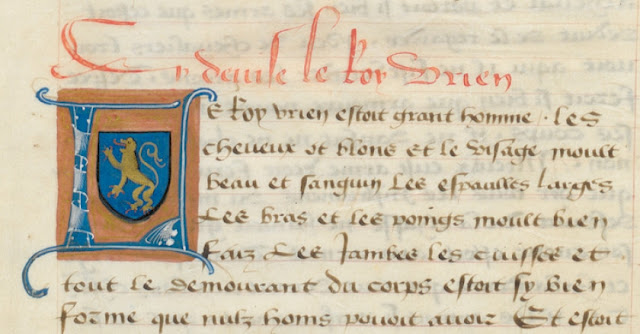 Cy deuise le Roy Vrien
LE Roy vrien estoit grant homme . Les
cheueux ot blons et le visage moult
beau et sanguin Les espaulles larges
Les bras et les poings moult bien
faiz Les Jambes les cuisses et
tout le demourant du corps estoit sy bien
forme que nulz homs pouoit auoir Et estoit